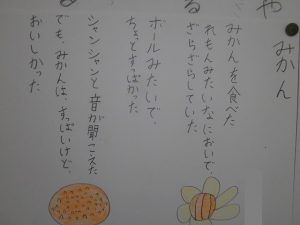 みかん
みかんを食べた
れもんみたいなにおいで、
ざらざらしていた
ボールみたいで、
ちょっとすっぱかった
シャンシャンと音が聞こえた
でも、みかんは、すっぱいけど、
おいしかった